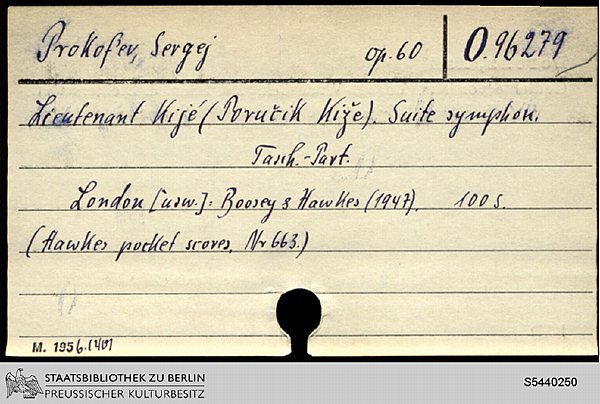 Prokof'ev, Sergej op. 60 O. 96279
Lieutenant Kijé (Poručik Kiže). Suite symphon.
Tasch.-Part.
London [usw.]: Boosey & Hawkes (1947). 100 S.
(Hawkes pocket scores. Nr 663.)
M. 1956.
STAATSBIBLIOTHEK ZU BERLIN
PREUSSISCHER KULTURBESITZ
S5440250